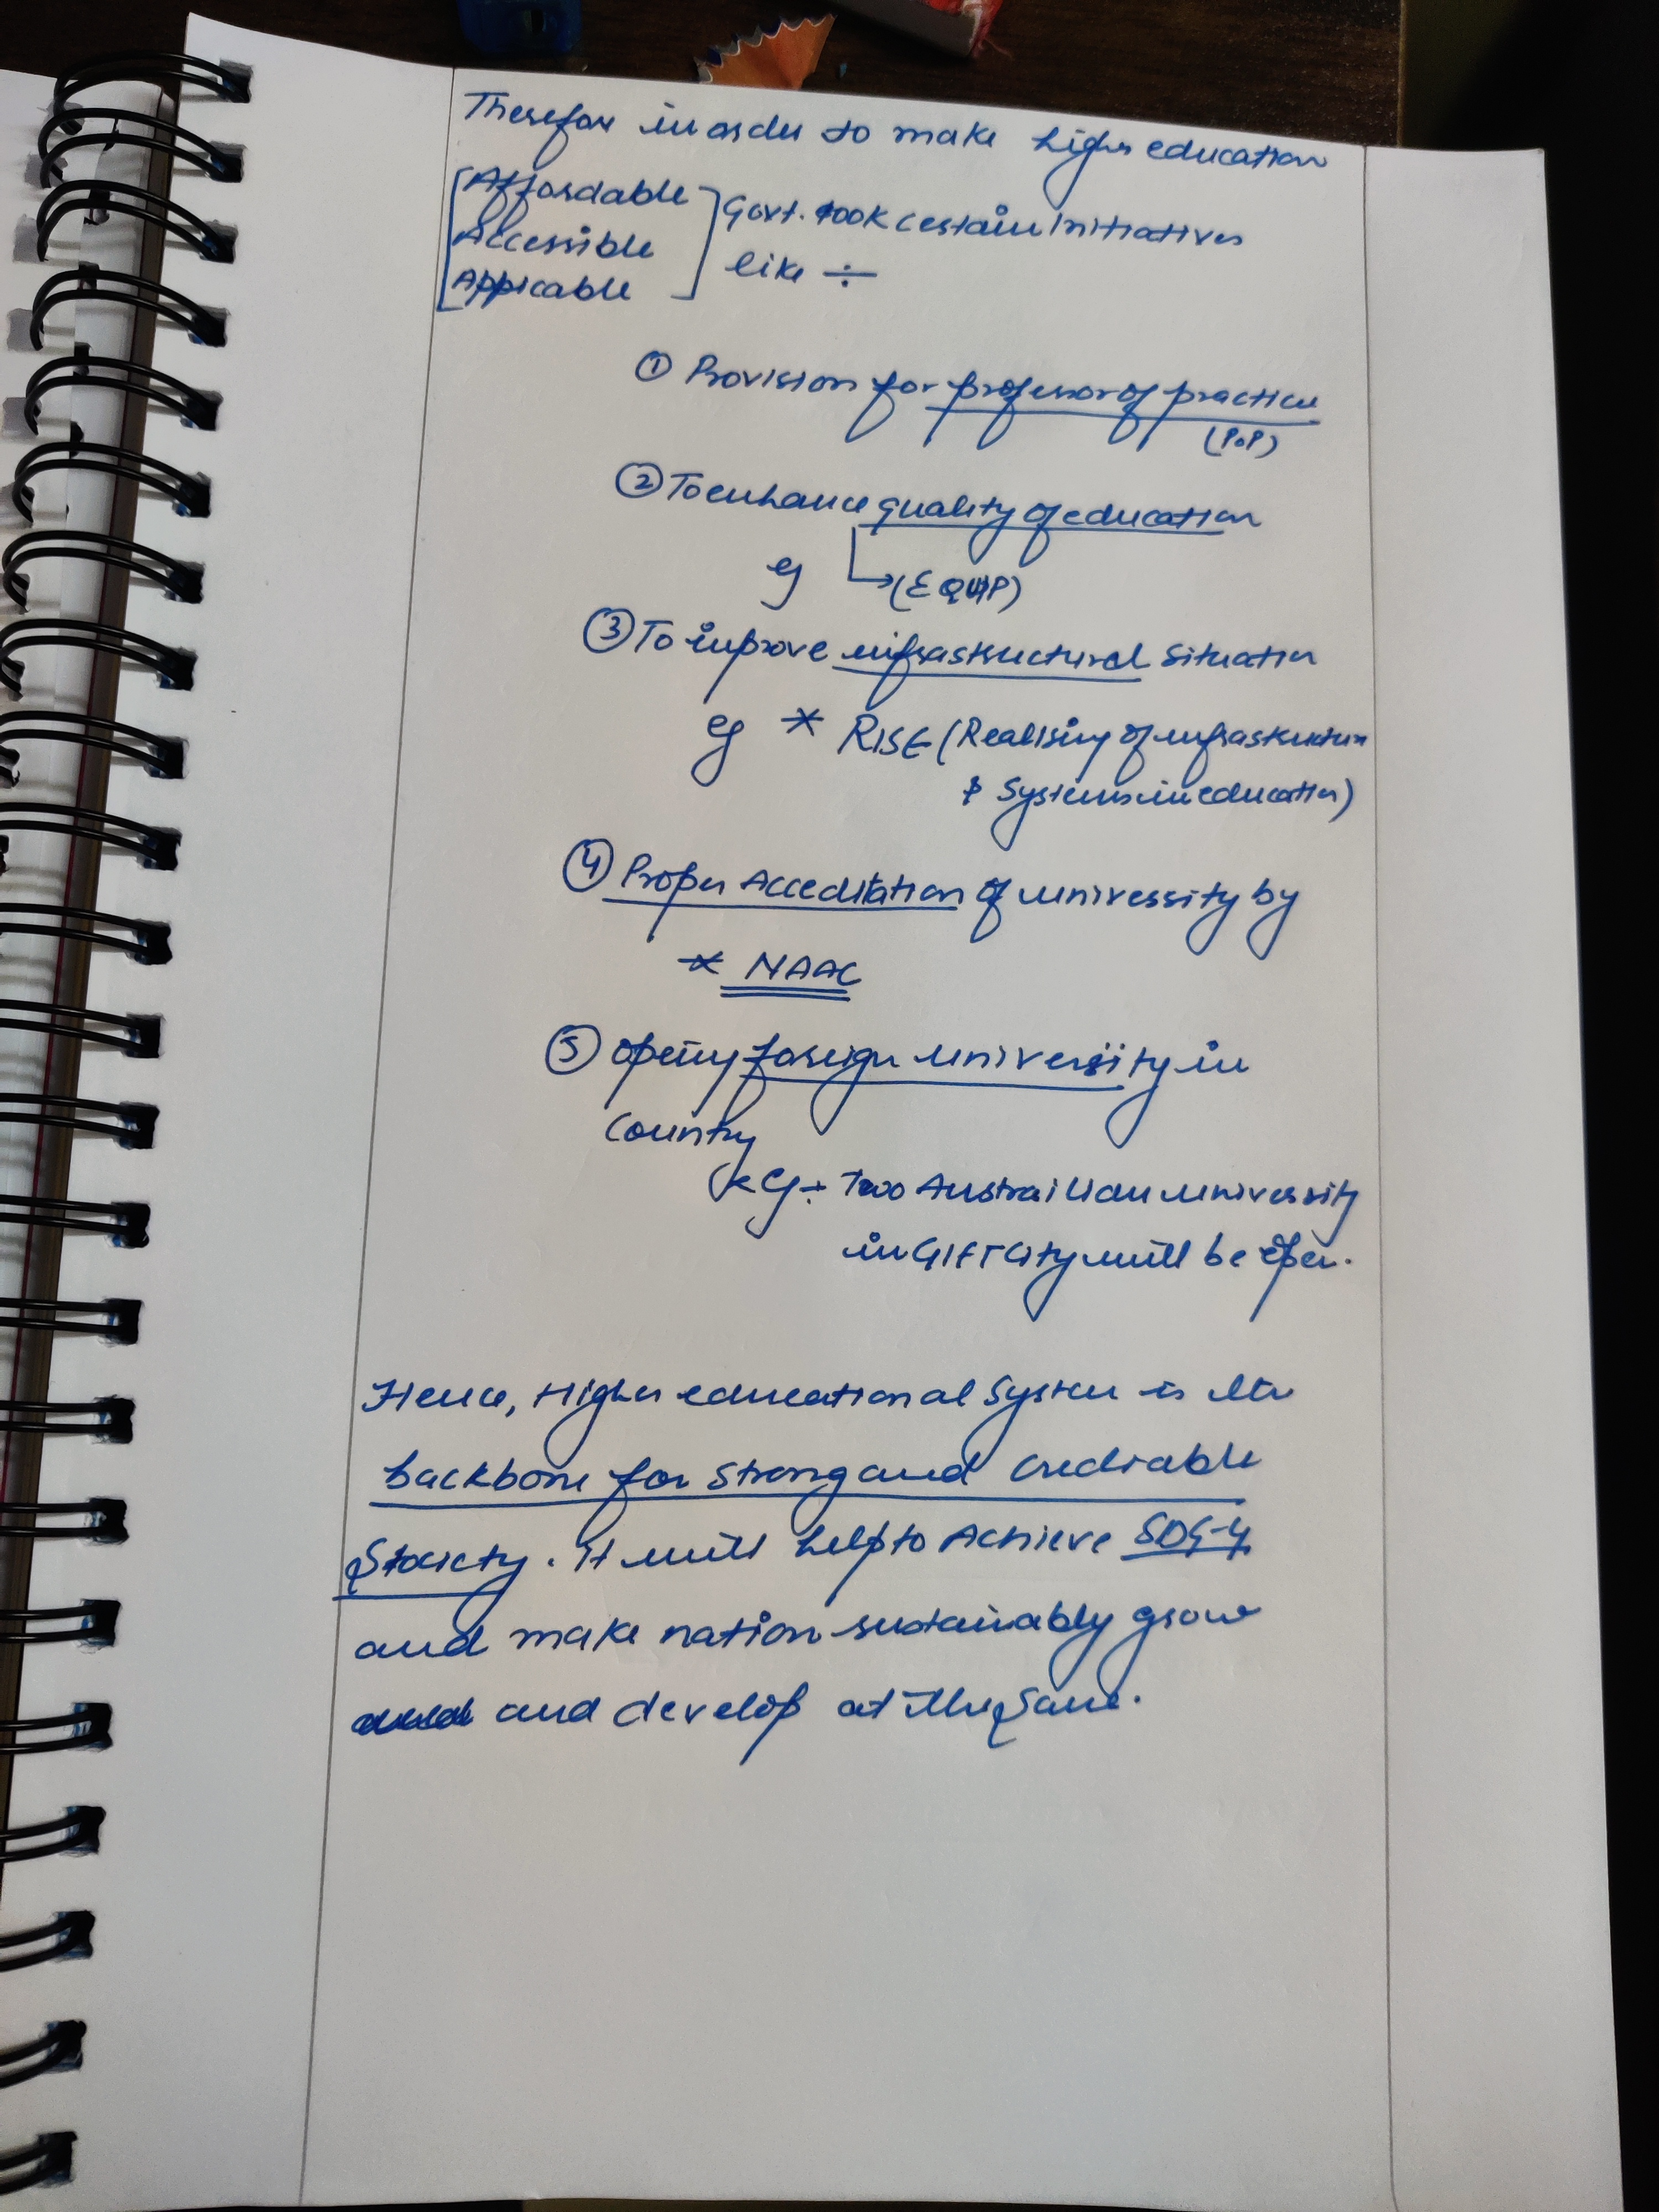 Therefor in order to make higher education
[Affordable
Accessible
Appicable]
Govt. took certain initiatives
like ÷
① Provision for professor of practice
(PoP)
② To enhance quality of education
eg → (EQUIP)
③ To improve infrastructural situation
eg * RISE (Realising of infrastructure
& Systems in education)
④ Proper Accreditation of university by
* NAAC
⑤ Opening foreign university in
country
Eg ÷ Two Austrailian university
in GIFT City will be open.
Hence, Higher educational system is the
backbone for strong and crediable
Society. It will help to Achieve SDG-4
and make nation sustainably grow
and develop at the same.